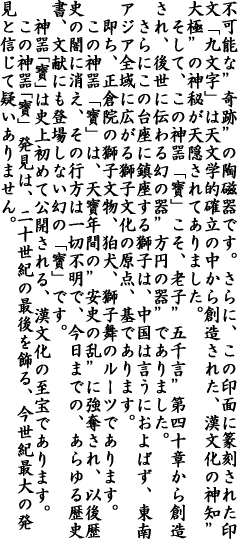 不可能な”奇跡”の陶磁器です。さらに、この印面に篆刻された印
文「九文字」は天文学的確立の中から創造された、漢文化の神知”
大極”の神秘が天隠されてありました。
　そして、この神器「寶」こそ、老子”五千言”第四十章から創造
され、後世に伝わる幻の器”方円の器”でありました。
　さらにこの台座に鎮座する獅子は、中国は言うにおよばず、東南
アジア全域に広がる獅子文化の原点、基であります。
　即ち、正倉院の獅子文物、狛犬、獅子舞のルーツであります。
　この神器「寶」は、天寶年間の”安史の乱”に強奪され、以後歴
史の闇に消え、その行方は一切不明で、今日までの、あらゆる歴史
書、文献にも登場しない幻の「寶」です。
　神器「寶」は史上初めて公開される、漢文化の至宝であります。
　この神器「寶」発見は、二十世紀の最後を飾る、今世紀最大の発
見と信じて疑いありません。